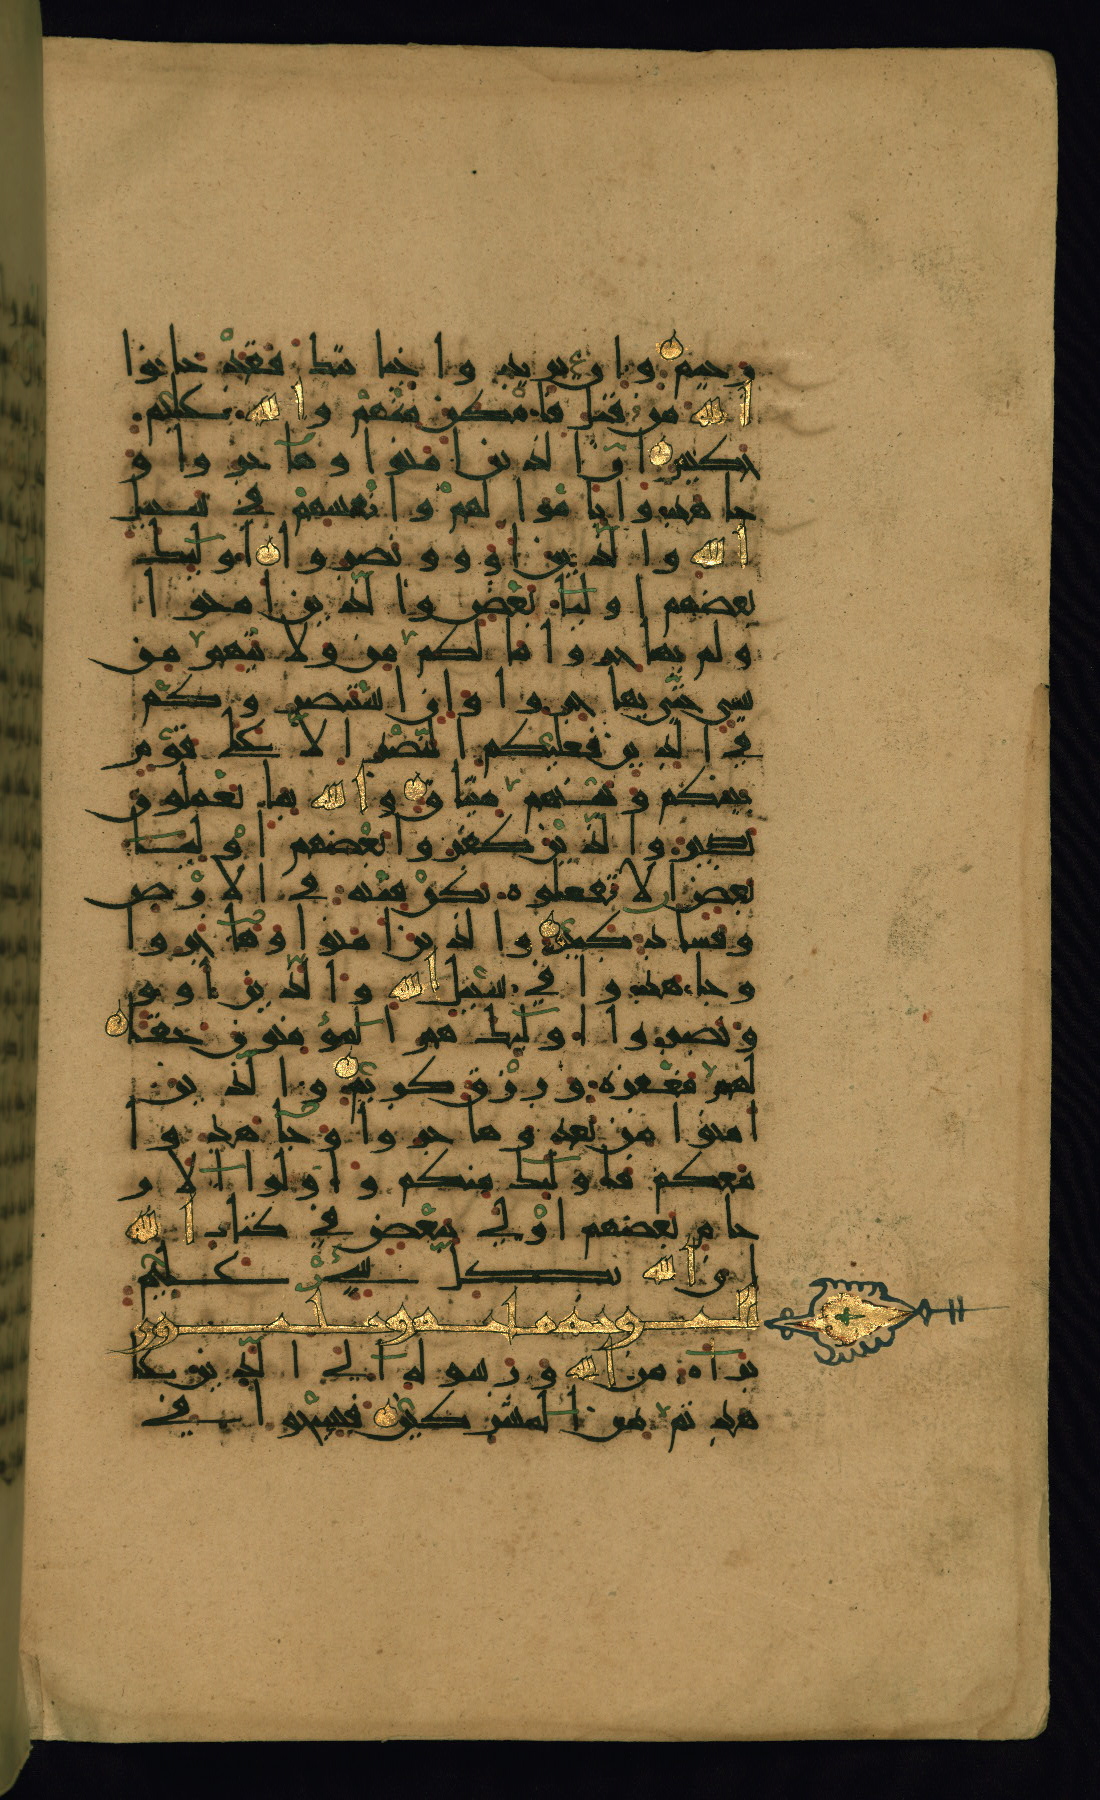 رحيم وان يريدوا خيانتك فقد خانوا
الله من قبل فامكن منهم والله عليم
حكيم ان الذين امنوا وهاجروا و
جاهدوا باموالهم وانفسهم في سبيل
الله والذين اووا ونصروا اولئك
بعضهم اوليا بعض والذين امنوا
ولم يهاجروا ما لكم من ولايتهم من
شي حتى يهاجروا وان استنصروكم
في الدين فعليكم النصر الا على قوم
بينكم وبينهم ميثاق والله بما تعملون
بصير والذين كفروا بعضهم اوليا
بعض الا تفعلوه تكن فتنه في الارض
وفساد كبير والذين امنوا وهاجروا
وجاهدوا في سبيل الله والذين اووا
ونصروا اولئك هم المؤمنون حقا
لهم مغفره ورزق كريم والذين
امنوا من بعد وهاجروا وجاهدوا
معكم فاولئك منكم واولوا الار
حام بعضهم اولى ببعض في كتاب الله
ان الله بكل شي عليم
براه من الله ورسوله الى الذين عا
هدتم من المشركين فسيحوا في